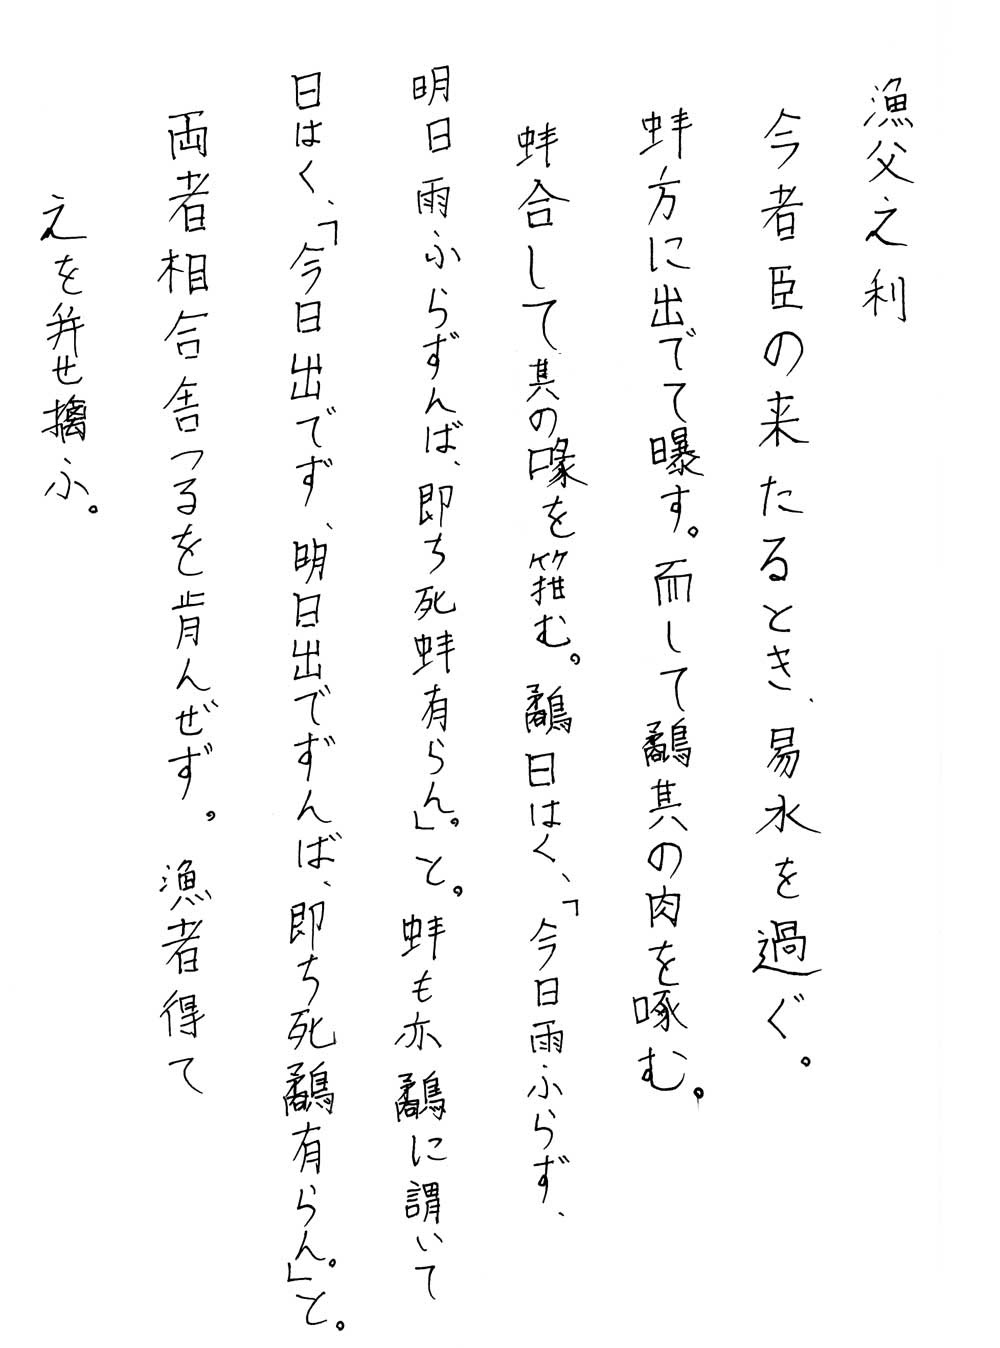 漁父之利
今者臣の来たるとき、易水を過ぐ。
蚌方に出でて曝す。而して鷸其の肉を啄む。
蚌合して其の喙を箝む。鷸曰はく、「今日雨ふらず、
明日雨ふらずんば、即ち死蚌有らん。」と。蚌も亦鷸に謂いて
曰はく、「今日出でず、明日出でずんば、即ち死鷸有らん。」と。
両者相合舎つるを肯んぜず。漁者得て
之を并せ擒ふ。